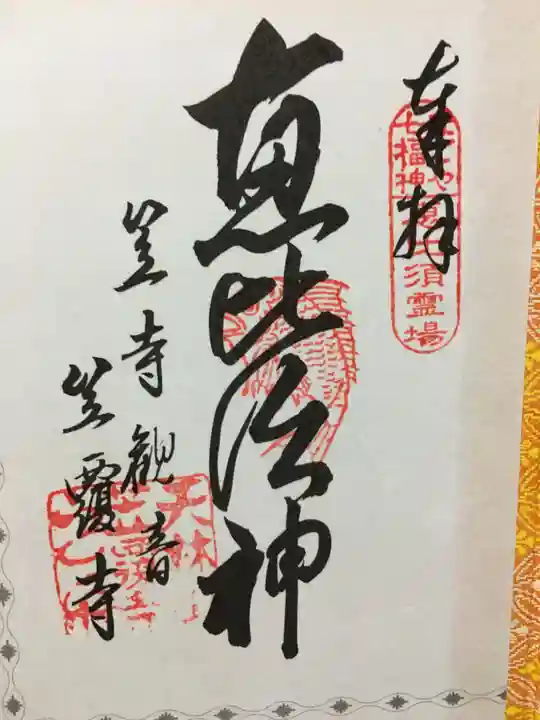 奉拝
七福神
恵比須霊場
恵比須神
笠寺観音
笠覆寺